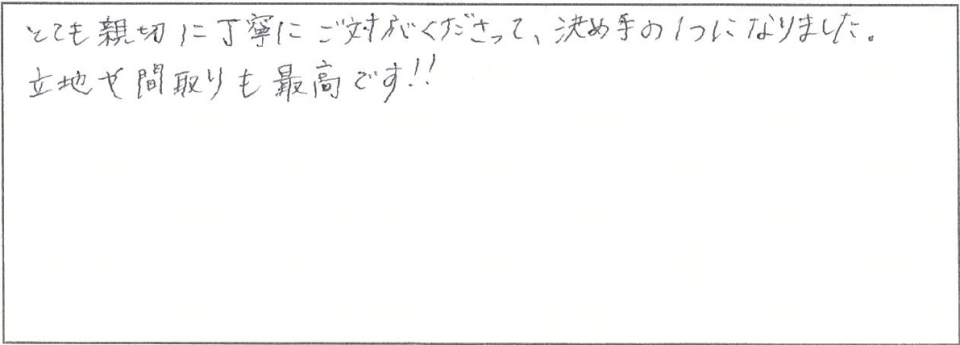 とても親切に丁寧にご対応くださって、決め手の1つになりました。
立地や間取りも最高です!!